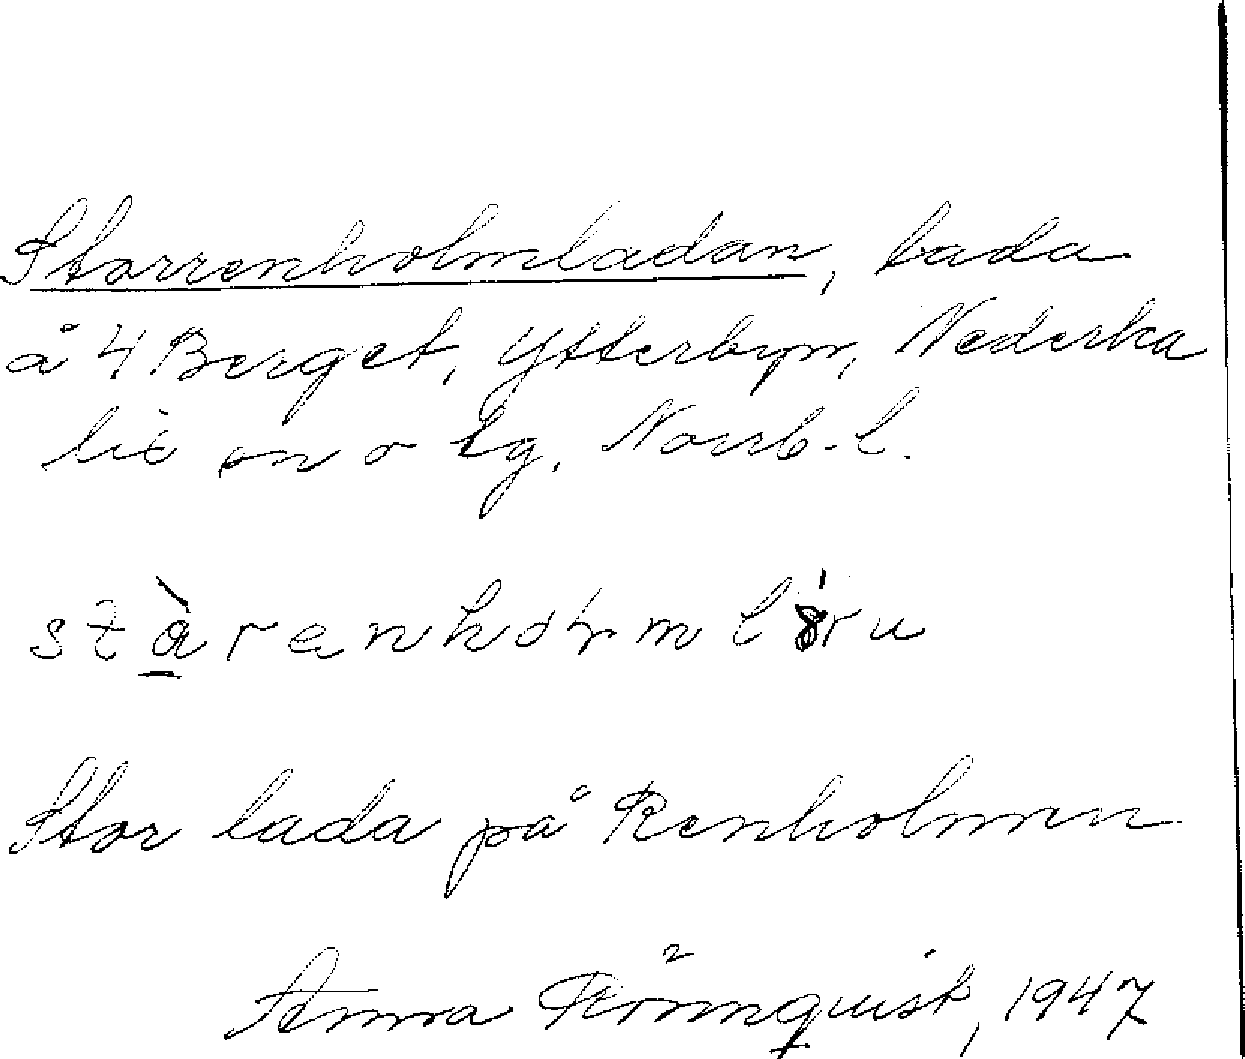 Storrenholmladan, lada
å 4 Berget, Ytterbyn, Nederka
lix sn o tg, Norrb. l.
Stor lada på Renholmen
Anna Rönnquist, 1947